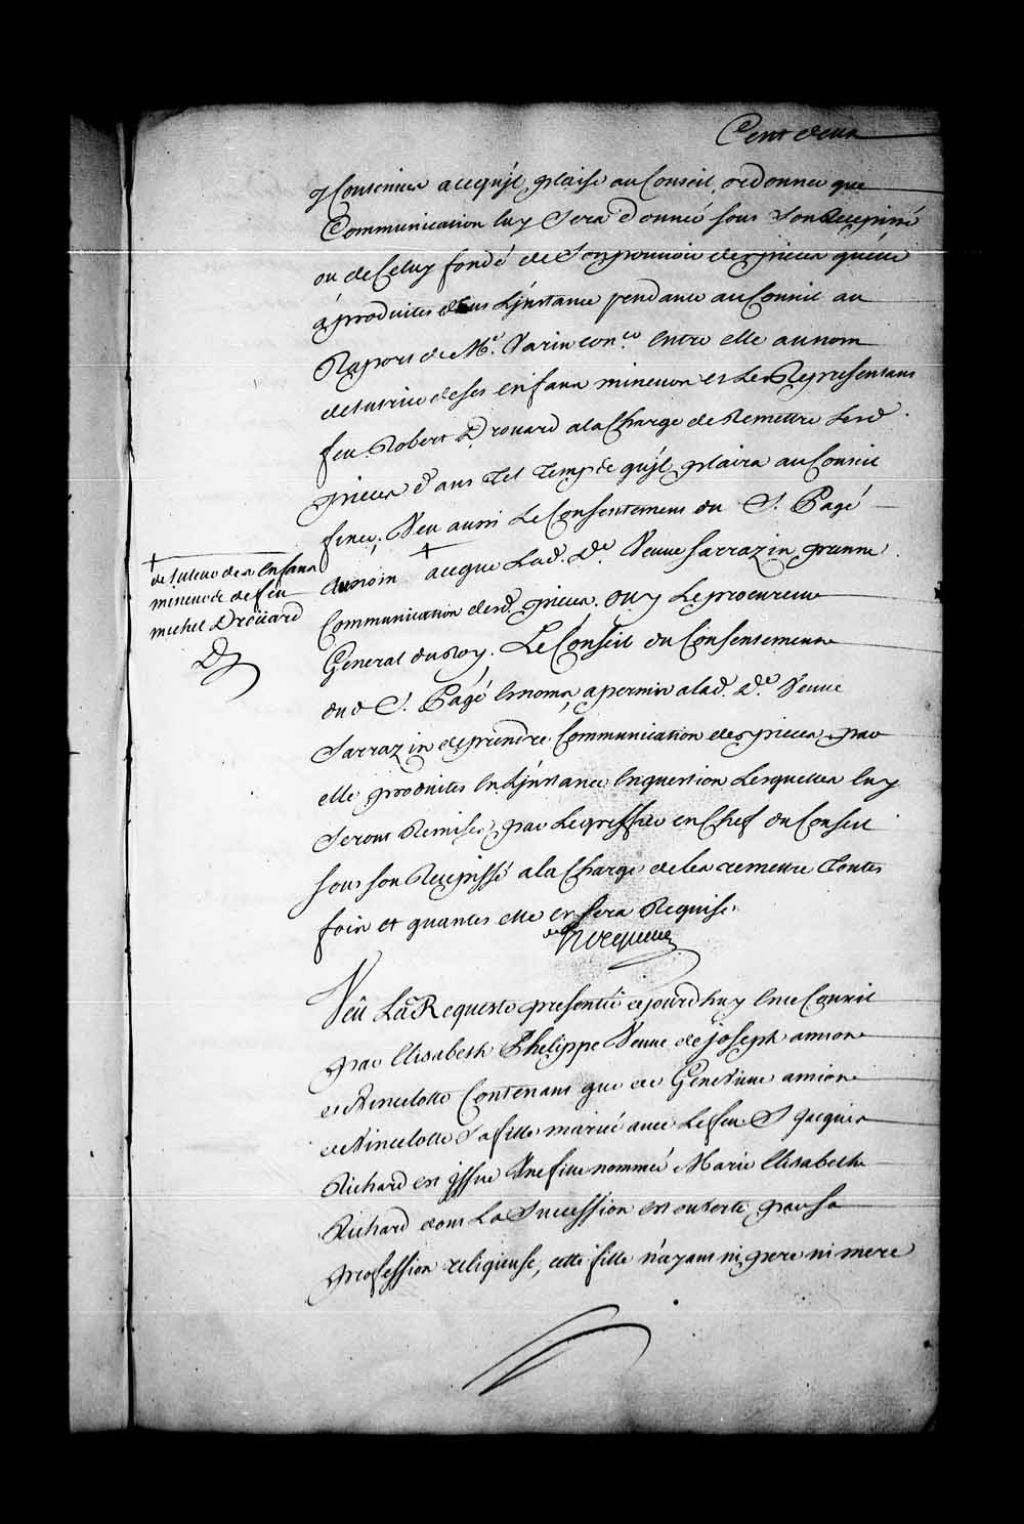 Cent deux
y Contenues a cequ'jl plaise au Conseil ordonner que
Communication luy Sera donnée sous Son Recepissé
ou de Celuy fondé de Son pouvoir des pieces qu'elle
a produites dans L'jnstance pendante au Conseil au
Raport de Me. Varin coner. entre elle au nom
de tutrice de ses enfans mineurs et Les Representans
feu Robert Drouard ala Charge de Remettre Lesd.
pieces dans tel temps qu'jl plaira au Conseil
fixer, Veu aussi Le Consentement du S. Pagé
au nom + aceque Lad. De. Veuve Sarrazin prenne
Communication desd. pieces. ouy Le procureur
General du Roy. Le Conseil du Consentement
dud S. Pagé Esnoms, a permis a lad. De. Veuve
Sarrazin de prendre Communication des pieces par
elle produites En L'jnstance En question Lesquelles luy
Seront Remises par Le greffier en Chef du Conseil
sous son Recepissé ala Charge de les remettre toutes
fois et quantes elle en sera Requise.
hocquart
+
de tuteur des Enfans
mineurs de feu
michel Drouard
Veû La Requeste presentée cejourdhuy En ce Conseil
par Elisabeth Philippe Veuve de joseph amiot
de Vincelotte Contenant que de Genevieve amiot
de Vincelotte Sa fille mariée avec Le feu S. Jacques
Richard est jssue Une fille nommée Marie Elisabeth
Richard dont La Succession est ouverte par sa
profession religieuse, cette fille n'ayant ni pere ni mere